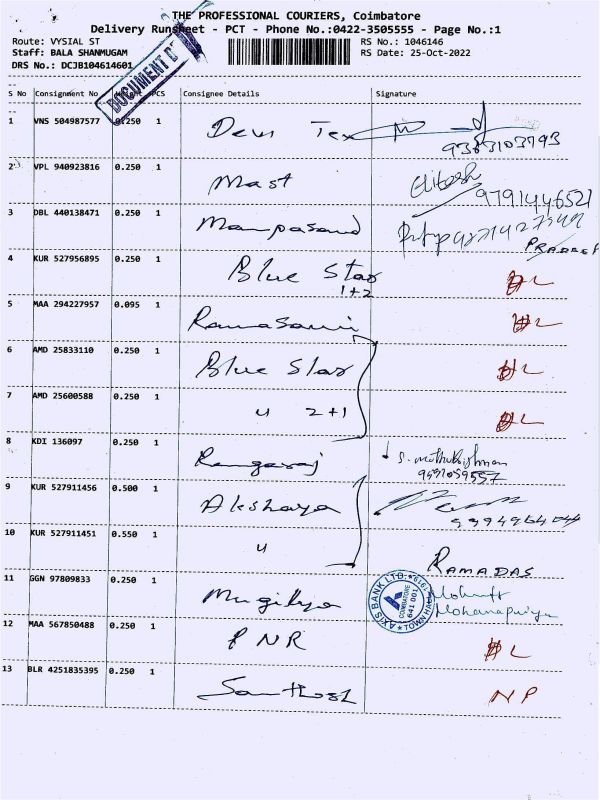 THE PROFESSIONAL COURIERS, Coimbatore
Delivery Runsheet - PCT - Phone No.:0422-3505555 - Page No.:1
Route: VYSIAL ST RS No.: 1046146
Staff: BALA SHANMUGAM RS Date: 25-Oct-2022
DRS No.: DCJB104614601
DOCUMENT
S No Consignment No Weight PCS Consignee Details Signature
1 VNS 504987577 0.250 1 Devi Tex
9363103793
2 VPL 940923816 0.250 1 Mast Hitesh
9791446521
3 DBL 440138471 0.250 1 Mampasand
PRADEEP
4 KUR 527956895 0.250 1 Blue Star
1+2
5 MAA 294227957 0.095 1 Ramasami
6 AMD 25833110 0.250 1 Blue Star
7 AMD 25600588 0.250 1 " 2+1
8 KDI 136097 0.250 1 Rangaraj
9 KUR 527911456 0.500 1 Akshaya
10 KUR 527911451 0.550 1 "
RAMADAS
11 GGN 97809833 0.250 1 Mugilya Mohanapriya
AXIS BANK LTD. 1919 COIMBATORE 641 001 TOWN HALL
12 MAA 567850488 0.250 1 PNR
13 BLR 4251835395 0.250 1 Santhosh NP